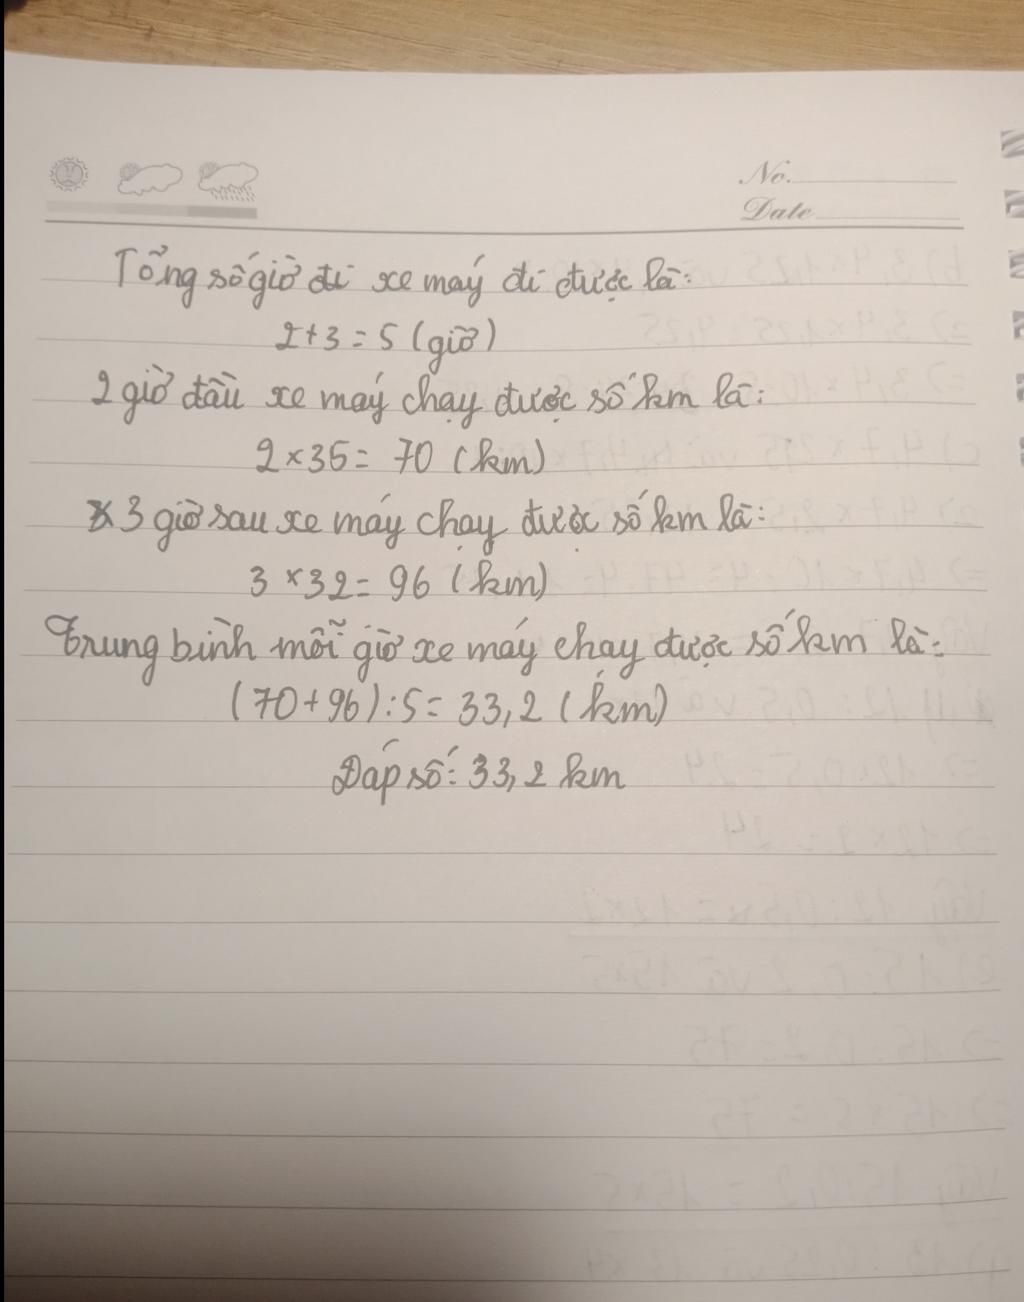 No.
Date
Tổng số giờ đi xe máy đi được là:
2+3=5 (giờ)
2 giờ đầu xe máy chạy được số km là:
2×35= 70 (km)
3 giờ sau xe máy chạy được số km là:
3 ×32= 96 (km)
Trung bình mỗi giờ xe máy chạy được số km là:
(70+96):5= 33,2 (km)
Đáp số: 33,2 km